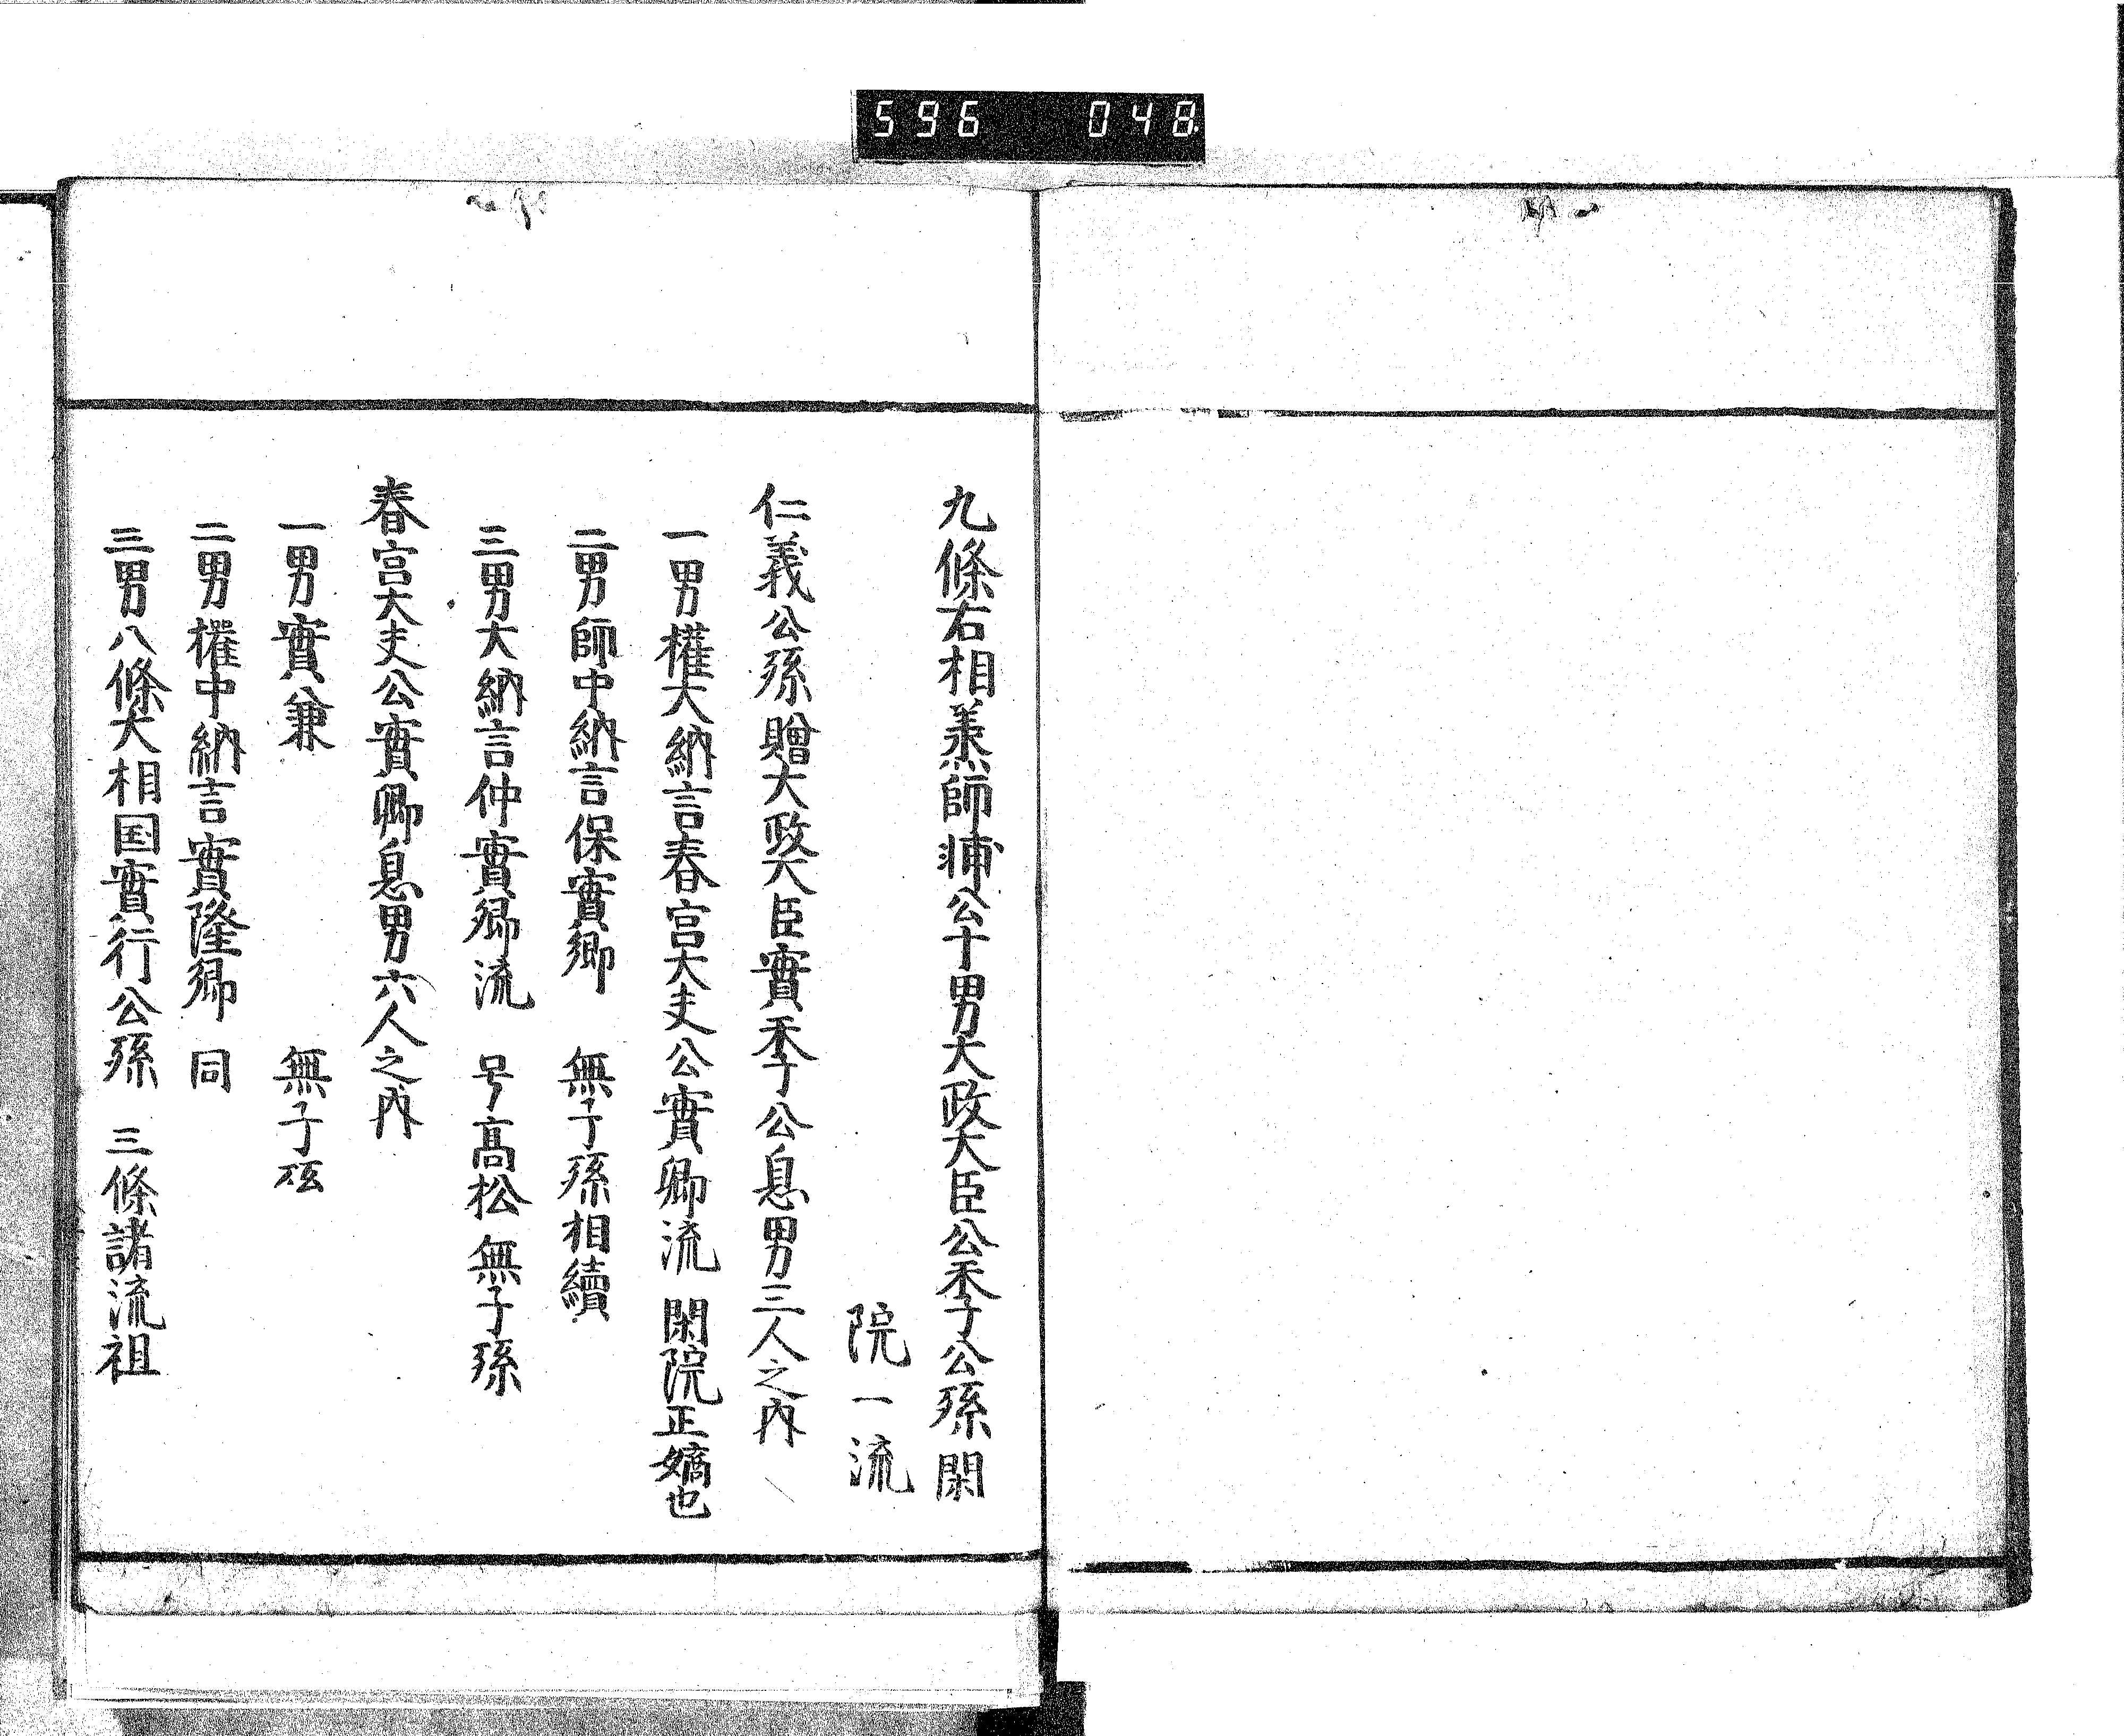 596 048
九條右相羕師輔公十男大政大臣公季公孫閑
院一流
仁義公孫贈大政大臣實季公息男三人之内
一男權大納言春宮大夫公實卿流 閑院正嫡也
二男師中納言保實卿 無子孫相續
三男大納言仲實卿流 号高松無子孫
春宮大夫公實卿息男六人之内
一男實兼 無子孫
二男權中納言實隆卿 同
三男八條大相国實行公孫 三條諸流祖